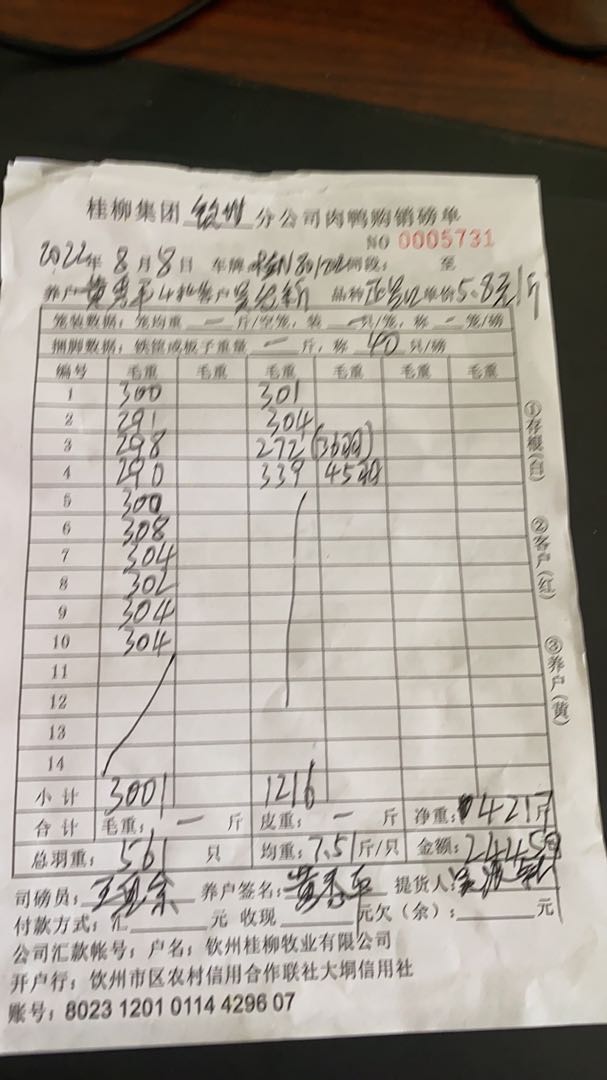 桂柳集团 钦州 分公司肉鸭购销磅单
NO 0005731
2022年 8月 8日 车牌 时段： 至
养户 黄秀平 客户 品种 单价 5.8元/斤
笼装数据：笼均重 一 斤/空笼，装 一 只/笼，称 一 笼/磅
捆脚数据：铁筐或板子重量 一 斤，称 40 只/磅
编号 毛重 毛重 毛重 毛重 毛重 毛重
1 300 301
2 291 304
3 298 272 (36羽)
4 290 339 45羽
5 300
6 308
7 304
8 302
9 304
10 304
11
12
13
14
小计 3001 1216
合计 毛重： 一 斤 皮重： 一 斤 净重： 4217斤
总羽重： 561 只 均重： 7.51斤/只 金额： 24459
司磅员： 养户签名： 黄秀平 提货人：
付款方式：汇 元 收现 元欠（余）： 元
公司汇款帐号：户名：钦州桂柳牧业有限公司
开户行：钦州市区农村信用合作联社大垌信用社
账号：8023 1201 0114 4296 07
①存根(白)
②客户(红)
③养户(黄)